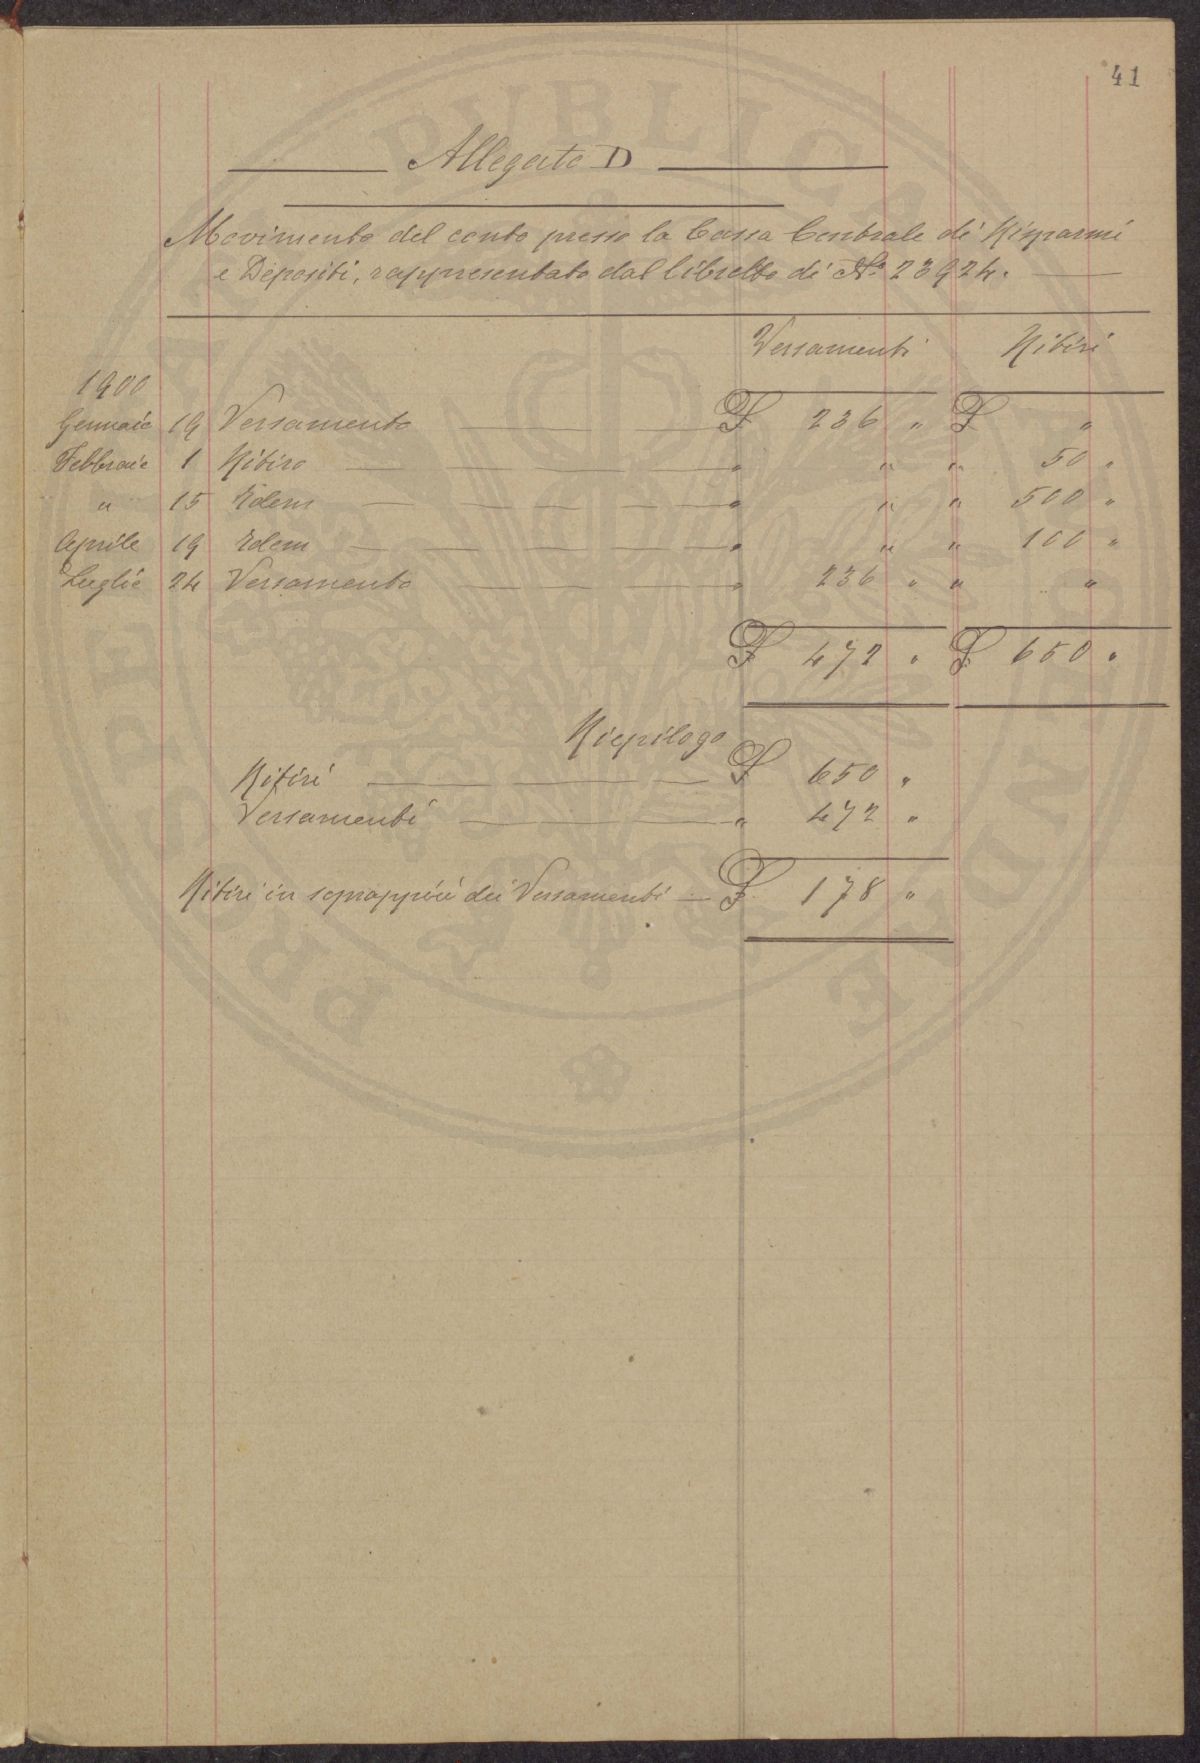 41
Allegato D
Movimento del conto presso la Cassa Centrale di Risparmi
e Depositi, rappresentato dal libretto di N.º 23924.
Versamenti Ritiri
1900
Gennaio 19 Versamento £ 236 " £ "
Febbraio 1 Ritiro " " " 50 "
" 15 Idem " " " 500 "
Aprile 19 Idem " " " 100 "
Luglio 24 Versamento " 236 " " "
£ 472 " £ 650 "
Riepilogo
Ritiri £ 650 "
Versamenti " 472 "
Ritiri in soprappiù dei Versamenti £ 178 "